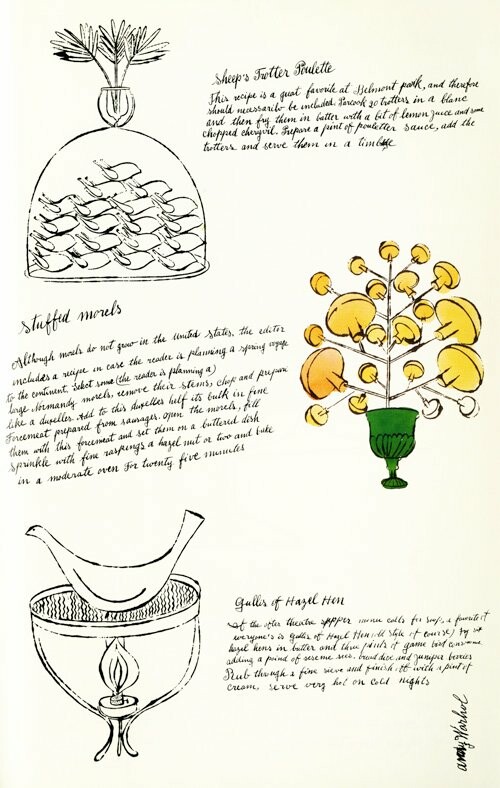 Sheep's Trotter Poulette
This recipe is a great favorite at Belmont park, and therefore
should necessarilto be included. Parcook 20 trotters in a blanc
and then fry them in batter with a bit of lemon juice and some
chopped chervil. Prepare a pint of pouletter sauce, add the
trotters and serve them in a timbale
Stuffed morels
Although morels do not grow in the United States, the editor
includes a recipe in case the reader is planning a spring voyage
to the continent. Select some (the reader is planning a)
large Normandy morels, remove their stems, chop and prepare
like a duxelles. Add to this duxelles half its bulk in fine
Forcemeat prepared from sausages. open the morels, fill
them with this forcemeat and set them on a buttered dish
sprinkle with fine raspings a hazel nut or two and bake
in a moderate oven for twenty five minutes
Gullis of Hazel Hen
If the after theatre supper menu calls for soup, a favorite of
everyone's is Gullis of Hazel Hen (old style of course) fry
hazel hens in butter and three pints of game bird consomme
adding a pound of sesame bread dice and juniper berries
Rub through a fine sieve and finish it with a pint of
cream, serve very hot on cold nights
andy Warhol